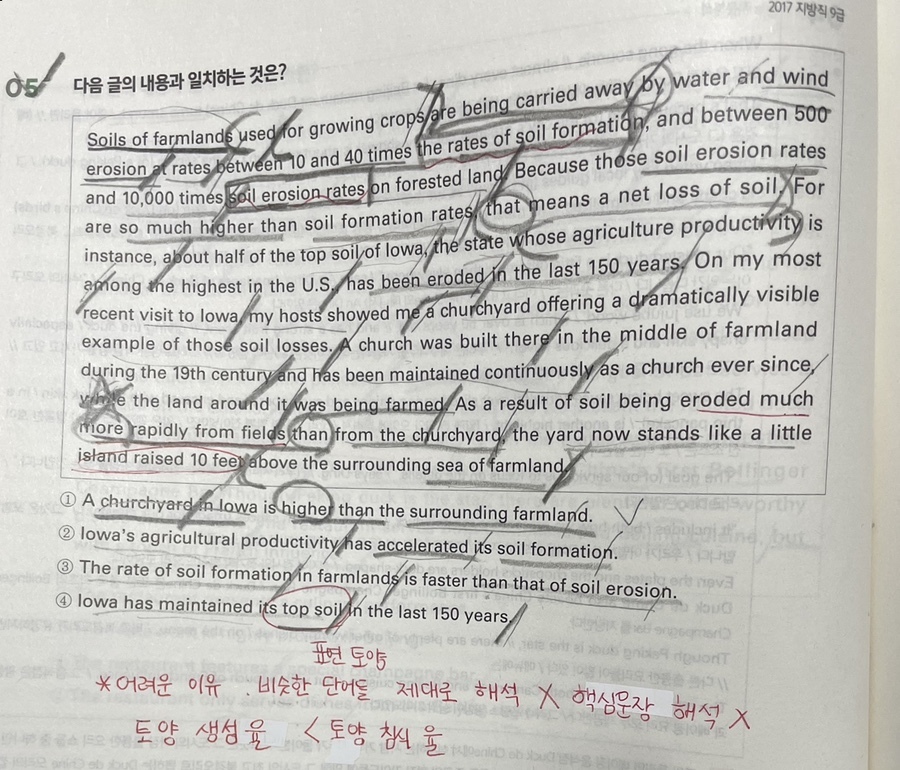 2017 지방직 9급
05 다음 글의 내용과 일치하는 것은?
Soils of farmlands used for growing crops are being carried away by water and wind
erosion at rates between 10 and 40 times the rates of soil formation, and between 500
and 10,000 times soil erosion rates on forested land. Because those soil erosion rates
are so much higher than soil formation rates, that means a net loss of soil. For
instance, about half of the top soil of Iowa, the state whose agriculture productivity is
among the highest in the U.S., has been eroded in the last 150 years. On my most
recent visit to Iowa, my hosts showed me a churchyard offering a dramatically visible
example of those soil losses. A church was built there in the middle of farmland
during the 19th century and has been maintained continuously as a church ever since,
while the land around it was being farmed. As a result of soil being eroded much
more rapidly from fields than from the churchyard, the yard now stands like a little
island raised 10 feet above the surrounding sea of farmland.
① A churchyard in Iowa is higher than the surrounding farmland.
② Iowa's agricultural productivity has accelerated its soil formation.
③ The rate of soil formation in farmlands is faster than that of soil erosion.
④ Iowa has maintained its top soil in the last 150 years.
표면 토양
*어려운 이유 . 비슷한 단어들 제대로 해석 X 핵심문장 해석 X
토양 생성 율 < 토양 침식 율